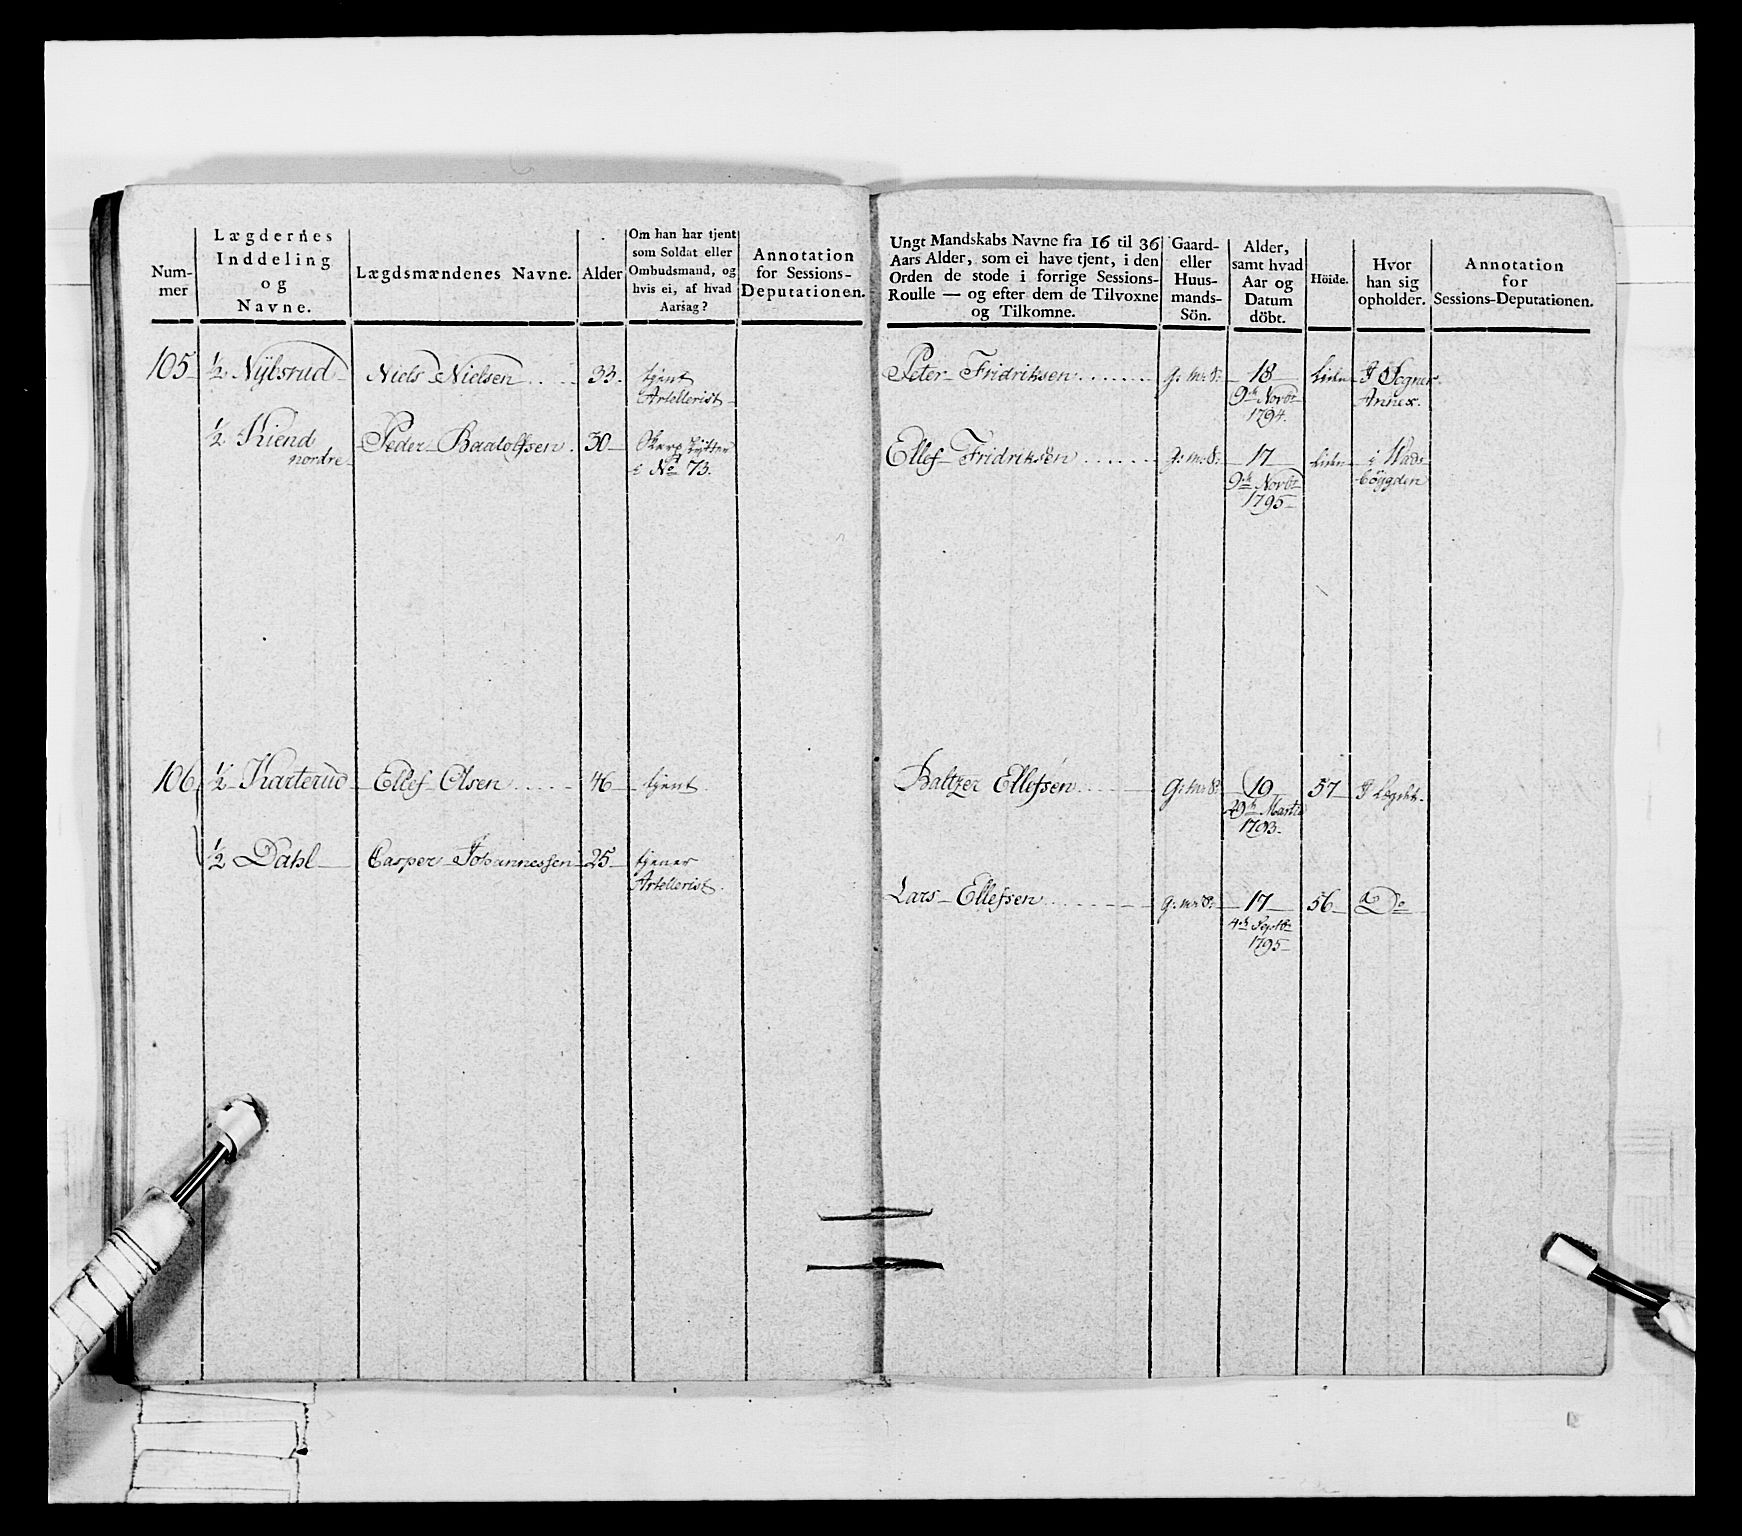 Num-
mer
Lægdernes
Inddeling
og
Navne.
Lægdsmændenes Navne.
Alder
Om han har tjent
som Soldat eller
Ombudsmand, og
hvis ei, af hvad
Aarsag?
Annotation
for Sessions-
Deputationen.
105 ½ Nÿbsrud Niels Nielsen 33. tjent
Artellerist
½ Kiend Peder Baalolfsen. 30
nordre
i No 73.
106 ½ Karterud Ellef Olsen 46 tjent
½ Dahl Casper Johannessen 25 tjener
Artellerist.
Ungt Mandskabs Navne fra 16 til 36
Aars Alder, som ei have tjent, i den
Orden de stode i forrige Sessions-
Roulle — og efter dem de Tilvoxne
og Tilkomne.
Gaard-
eller
Huus-
mands-
Sön.
Alder,
samt hvad
Aar og
Datum
döbt.
Höide.
Hvor
han sig
opholder.
Annotation
for
Sessions-Deputationen.
Peter Fridriksen g: m: S: 18 Liden I Sogner
9de Novbr Annex.
1794.
Ellef Fridriksen g: m: S: 17 Liden i Hads
9de Novbr böygden
1795
Baltzer Ellefsen g: m: S: 19 57 I Lægdet.
29de Martii
1793.
Lars Ellefsen g: m: S: 17 56 Do
4de Septbr
1795